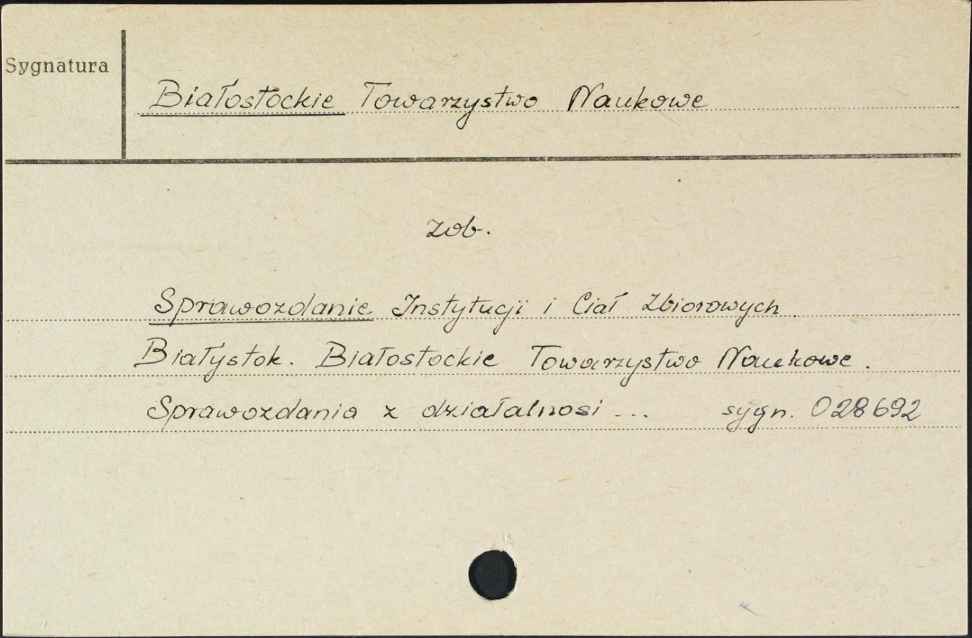 Sygnatura
Białostockie Towarzystwo Naukowe
zob.
Sprawozdanie Instytucji i Ciał Zbiorowych.
Białystok. Białostockie Towarzystwo Naukowe.
Sprawozdania z działalnosi ... sygn. 028692